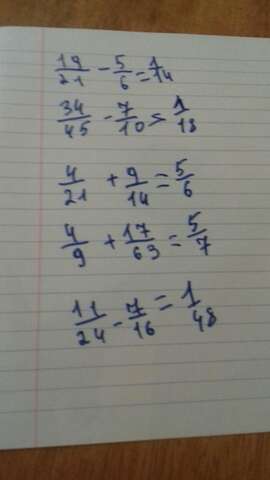 19/21 - 5/6 = 1/14
34/45 - 7/10 = 1/18
4/21 + 9/14 = 5/6
4/9 + 17/63 = 5/7
11/24 - 7/16 = 1/48